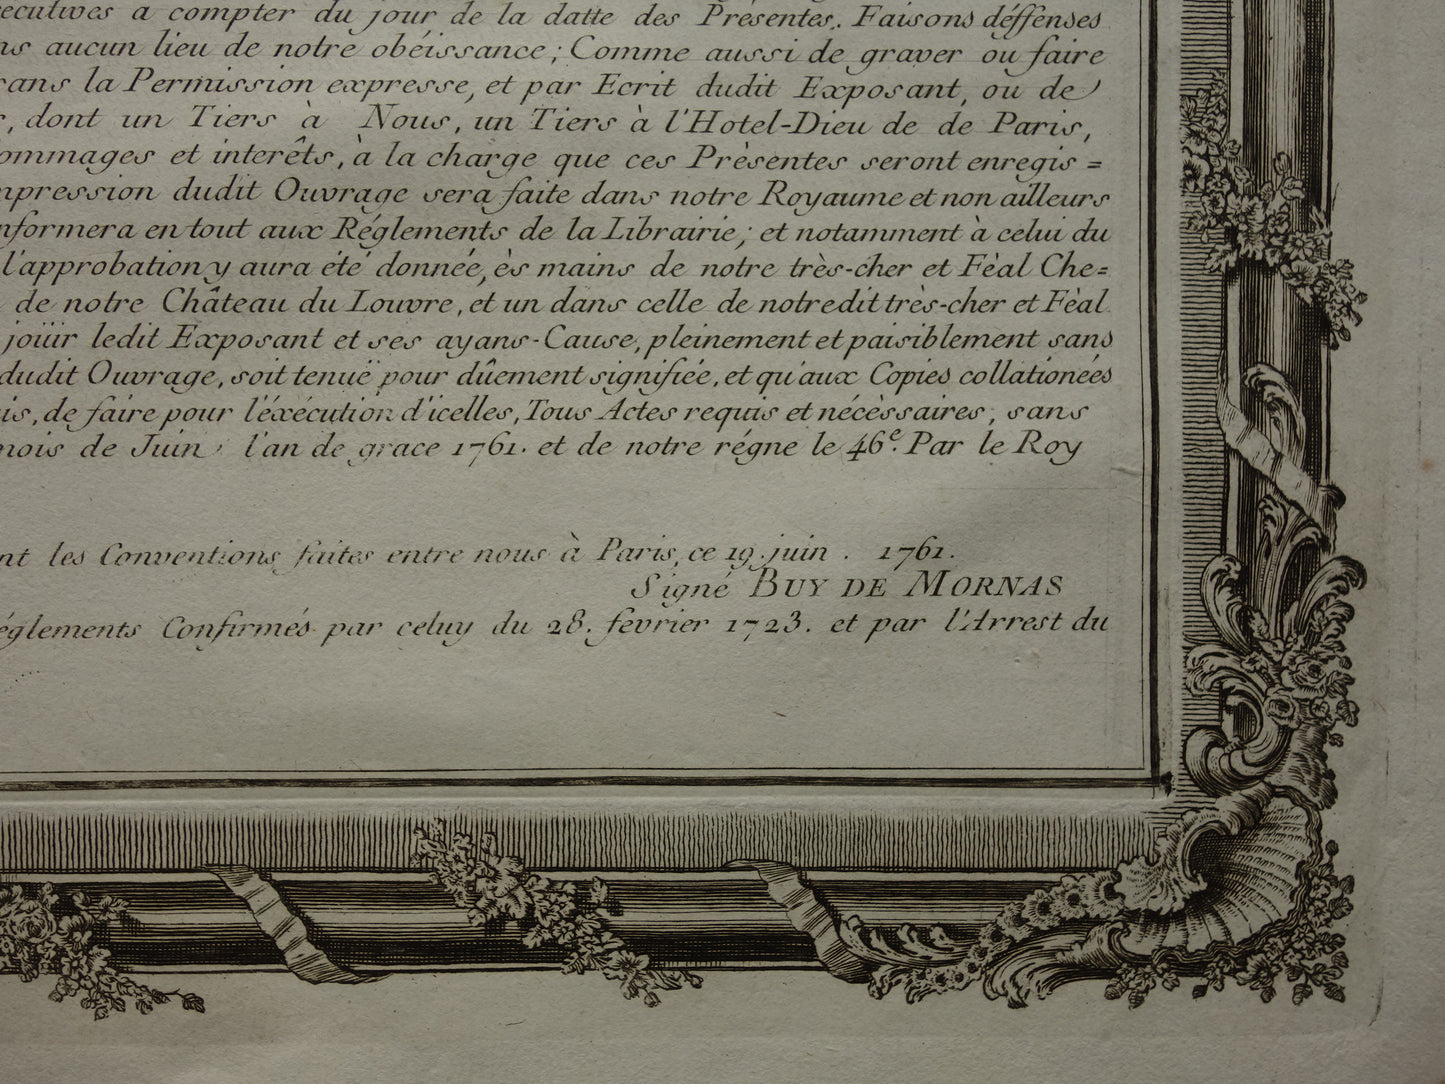 a compter du jour de la datte des Présentes. Faisons déffenses
aucun lieu de notre obéissance; Comme aussi de graver ou faire
la Permission expresse, et par Ecrit dudit Exposant, ou de
, dont un Tiers à Nous, un Tiers à l'Hotel-Dieu de de Paris,
ommages et interêts, à la charge que ces Prèsentes seront enregis =
mpression dudit Ouvrage sera faite dans notre Royaume et non ailleurs
nformera en tout aux Réglements de la Librairie; et notamment à celui du
l'approbation y aura été donnée, ès mains de notre très-cher et Fèal Che=
de notre Château du Louvre, et un dans celle de notredit très-cher et Fèal
joüir ledit Exposant et ses ayans-Cause, pleinement et paisiblement sans
dudit Ouvrage, soit tenuë pour dûement signifiée, et qu'aux Copies collationées
is, de faire pour l'éxécution d'icelles, Tous Actes requis et nécèssaires, sans
mois de Juin l'an de grace 1761. et de notre régne le 46e. Par le Roy
nt les Conventions faites entre nous à Paris, ce 19. juin . 1761.
Signé BUY DE MORNAS
églements Confirmés par celuy du 28. fevrier 1723. et par l'Arrest du